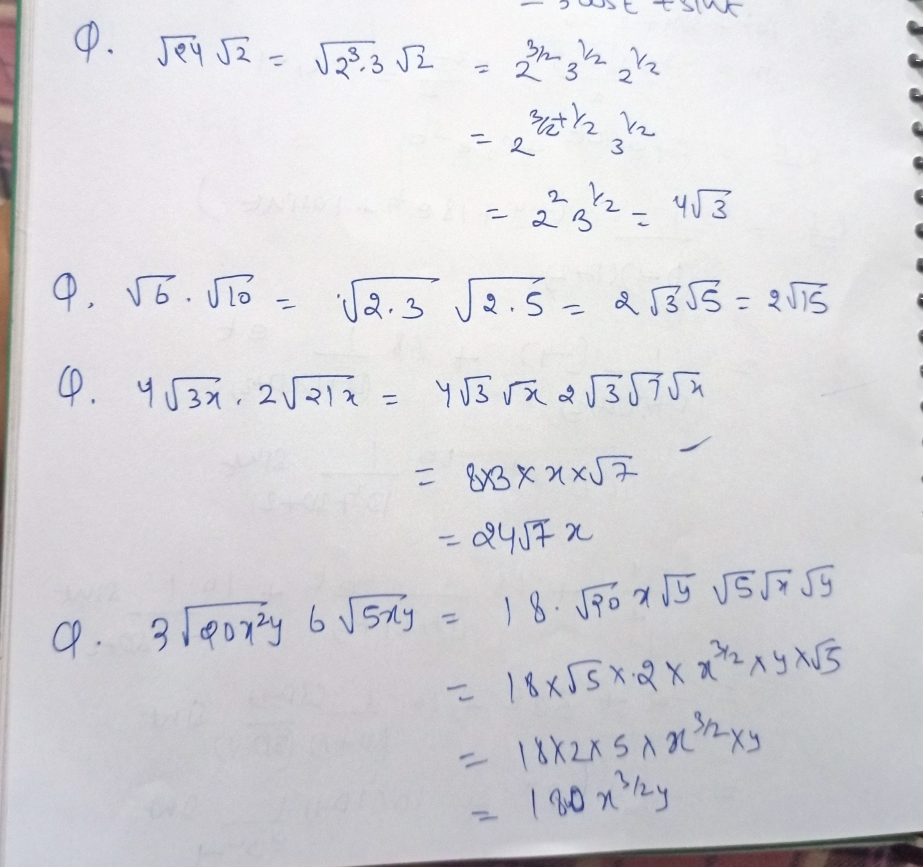 = 3cost + sint
Q. √24 √2 = √2³·3 √2 = 2^3/2 3^1/2 2^1/2
= 2^3/2+1/2 3^1/2
= 2² 3^1/2 = 4√3
Q. √6 · √10 = √2.3 √2.5 = 2√3√5 = 2√15
Q. 4√3x · 2√21x = 4√3 √x 2√3√7√x
= 8×3×x×√7
= 24√7 x
Q. 3√20x²y 6√5xy = 18·√20 x√y √5√x√y
= 18×√5×2×x^3/2×y×√5
= 18×2×5×x^3/2×y
= 180 x^3/2y